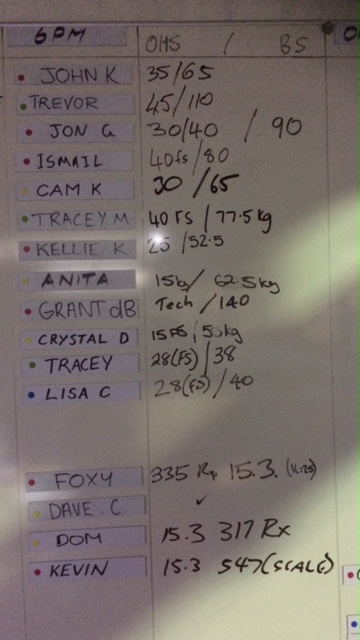 6PM OHS / BS
JOHN K 35/65
TREVOR 45/110
JON G 30/40 / 90
ISMAIL 40fs/80
CAM K 30/65
TRACEY M 40 FS / 77.5kg
KELLIE K 25/52.5
ANITA 15kg/ 62.5kg
GRANT dB Tech /140
CRYSTAL D 15FS, 50kg
TRACEY 28(FS)/38
LISA C 28(FS)/40
FOXY 335 Rx 15.3.
DAVE.C ✓
DOM 15.3 317 Rx
KEVIN 15.3 547(SCALE)